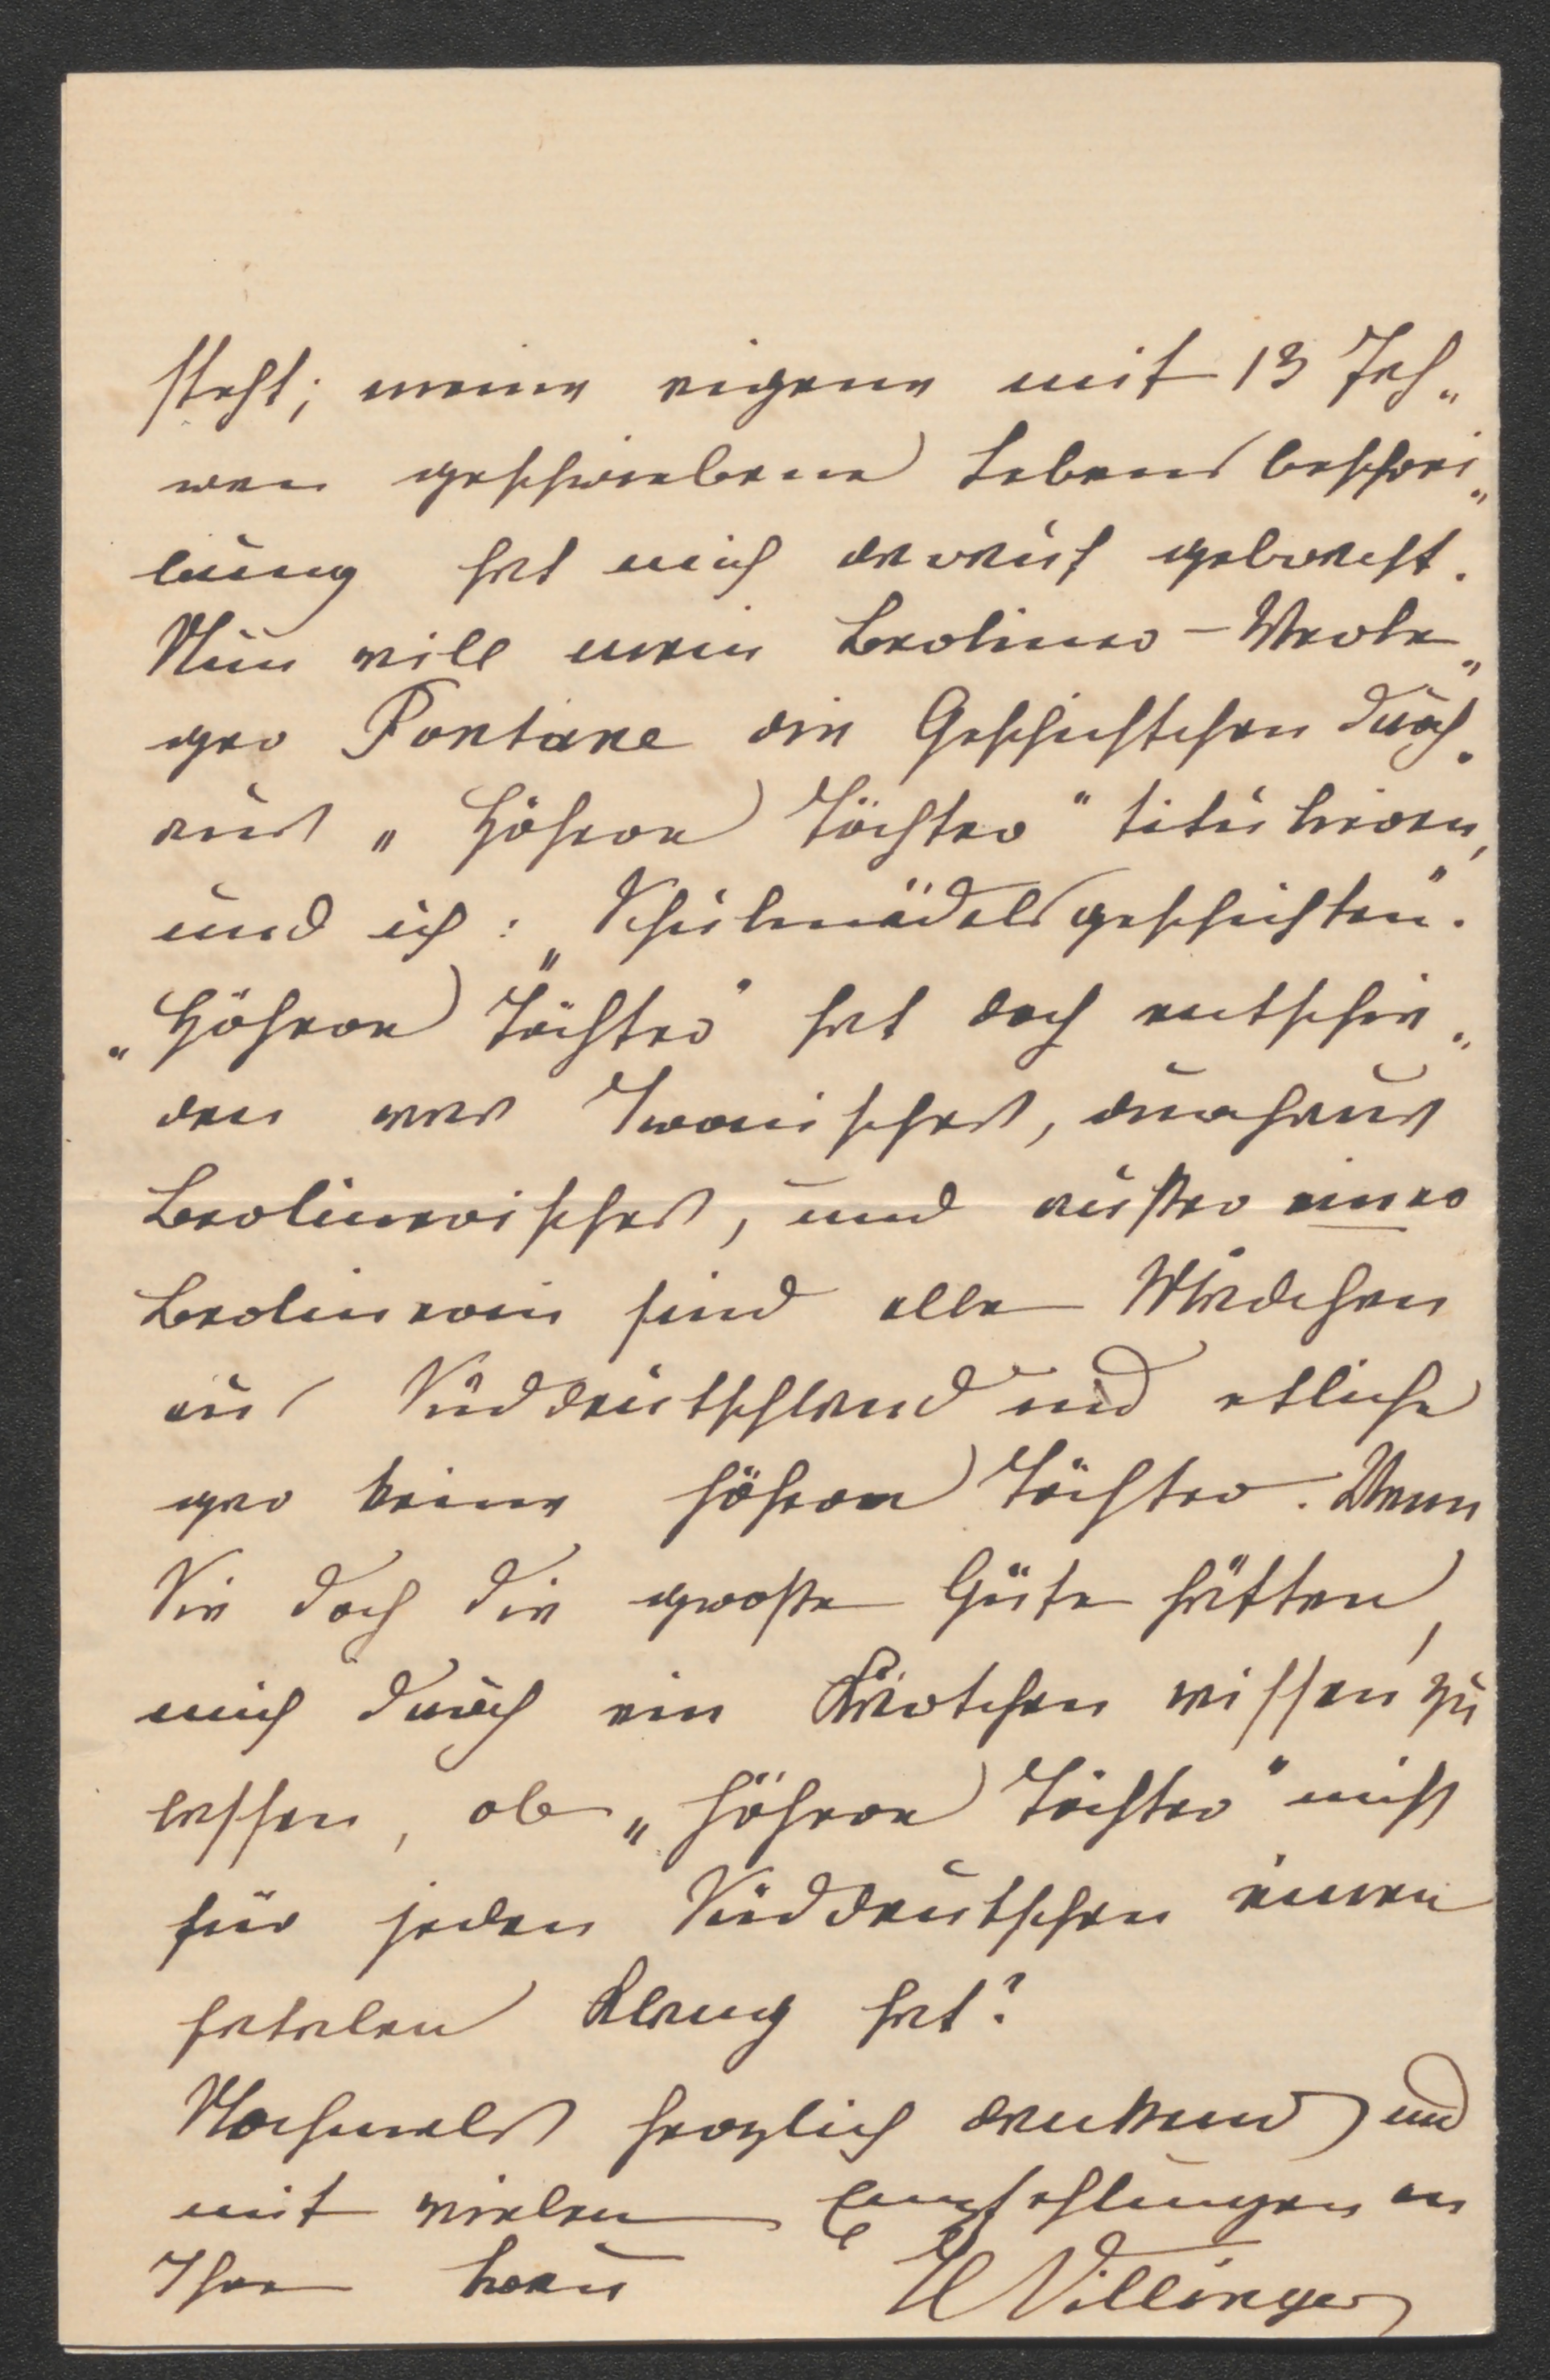 steht; meine eigene mit 13 Jah„
ren geschriebene Lebensbeschrei„
bung hat mich darauf gebracht.
Nun will mein Berliner-Verle„
ger Fontane die Geschichtchen durch„
aus „Höhere Töchter“ tituliren,
und ich: „Schulmädelsgeschichten“.
„Höhere Töchter“ hat doch entschie„
den was Ironisches, durchaus
Berlinerisches, und außer einer
Berlinerin sind alle Mädchen
aus Süddeutschland und etliche
gar keine höhere Töchter. Wenn
Sie doch die große Güte hätten,
mich durch ein Kärtchen wissen zu
lassen, ob „höhere Töchter“ nicht
für jeden Süddeutschen einen
fatalen Klang hat?
Nochmals herzlich dankend und
mit vielen Empfehlungen an
Ihre Frau
H Villinger